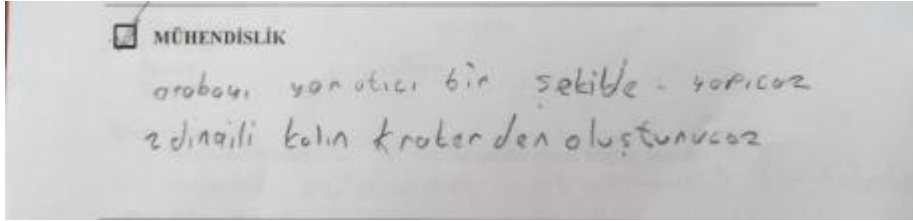 MÜHENDİSLİK
arabayı yaratıcı bir şekilde yapıcaz
2 dingili kalın krakerden oluşturucaz